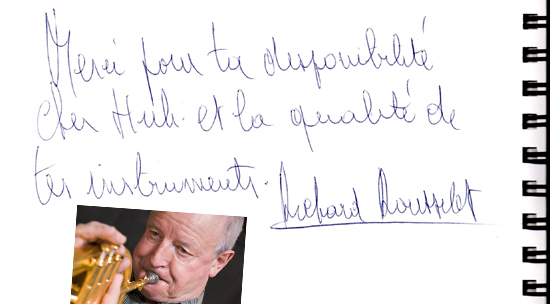 Merci pour ta disponibilité
cher Hub. et la qualité de
tes instruments.
Richard Rousselet